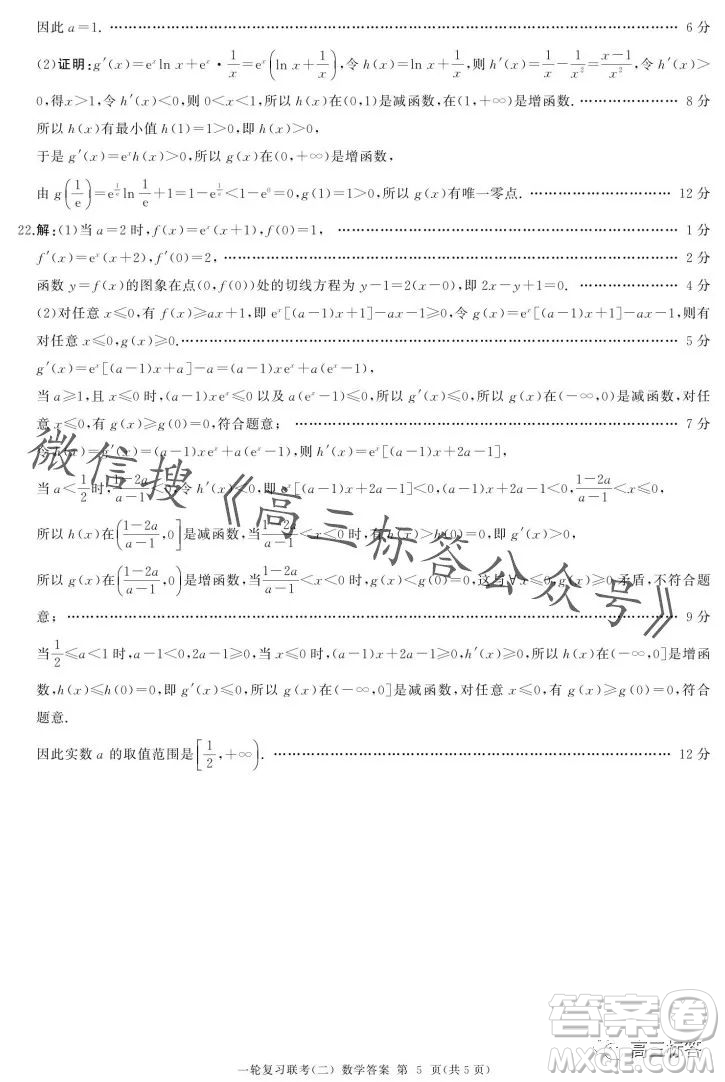 因此 a=1. …… 6 分
(2)证明:g′(x)=eˣln x+eˣ·1/x=eˣ(ln x+1/x),令 h(x)=ln x+1/x,则 h′(x)=1/x-1/x²=(x-1)/x²,令 h′(x)>
0,得x>1,令 h′(x)<0,则 0<x<1,所以 h(x)在(0,1)是减函数,在(1,+∞)是增函数. …… 8 分
所以 h(x)有最小值 h(1)=1>0,即 h(x)>0,
于是 g′(x)=eˣh(x)>0,所以 g(x)在(0,+∞)是增函数,
由 g(1/e)=e^(1/e)ln 1/e+1=1-e^(1/e)<1-e⁰=0,g(1)=1>0,所以 g(x)有唯一零点. …… 12 分
22.解:(1)当 a=2 时,f(x)=eˣ(x+1),f(0)=1, …… 1 分
f′(x)=eˣ(x+2),f′(0)=2, …… 2 分
函数 y=f(x)的图象在点(0,f(0))处的切线方程为 y-1=2(x-0),即 2x-y+1=0. …… 4 分
(2)对任意 x≤0,有 f(x)≥ax+1,即 eˣ[(a-1)x+1]-ax-1≥0,令 g(x)=eˣ[(a-1)x+1]-ax-1,则有
对任意 x≤0,g(x)≥0. …… 5 分
g′(x)=eˣ[(a-1)x+a]-a=(a-1)xeˣ+a(eˣ-1),
当 a≥1,且 x≤0 时,(a-1)xeˣ≤0 以及 a(eˣ-1)≤0,所以 g′(x)≤0,所以 g(x)在(-∞,0]是减函数,对任
意 x≤0,有 g(x)≥g(0)=0,符合题意; …… 7 分
令h(x)=g′(x)=(a-1)xeˣ+a(eˣ-1),则 h′(x)=eˣ[(a-1)x+2a-1],
当 a<1/2时,(1-2a)/(a-1)<0,令 h′(x)≤0,所以(a-1)x+2a-1≤0,(a-1)x≤1-2a,(1-2a)/(a-1)≤x≤0,
所以 h(x)在[(1-2a)/(a-1),0]是减函数,当(1-2a)/(a-1)<x<0 时,有 h(x)>h(0)=0,即 g′(x)>0,
所以 g(x)在((1-2a)/(a-1),0)是增函数,当(1-2a)/(a-1)<x<0 时,g(x)<g(0)=0,这与∀x≤0,g(x)≥0矛盾,不符合题
意; …… 9 分
当1/2≤a<1 时,a-1<0,2a-1≥0,当 x≤0 时,(a-1)x+2a-1≥0,h′(x)≥0,所以 h(x)在(-∞,0]是增函
数,h(x)≤h(0)=0,即 g′(x)≤0,所以 g(x)在(-∞,0]是减函数,对任意 x≤0,有 g(x)≥g(0)=0,符合
题意.
因此实数 a 的取值范围是[1/2,+∞). …… 12 分
微信搜《高三标答公众号》
答案圈
高三标答
MXQE.COM
一轮复习联考(二) 数学答案 第 5 页(共 5 页)